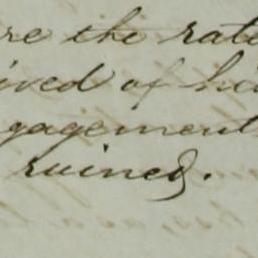 re the rate
ived of his
gagement
ruined.